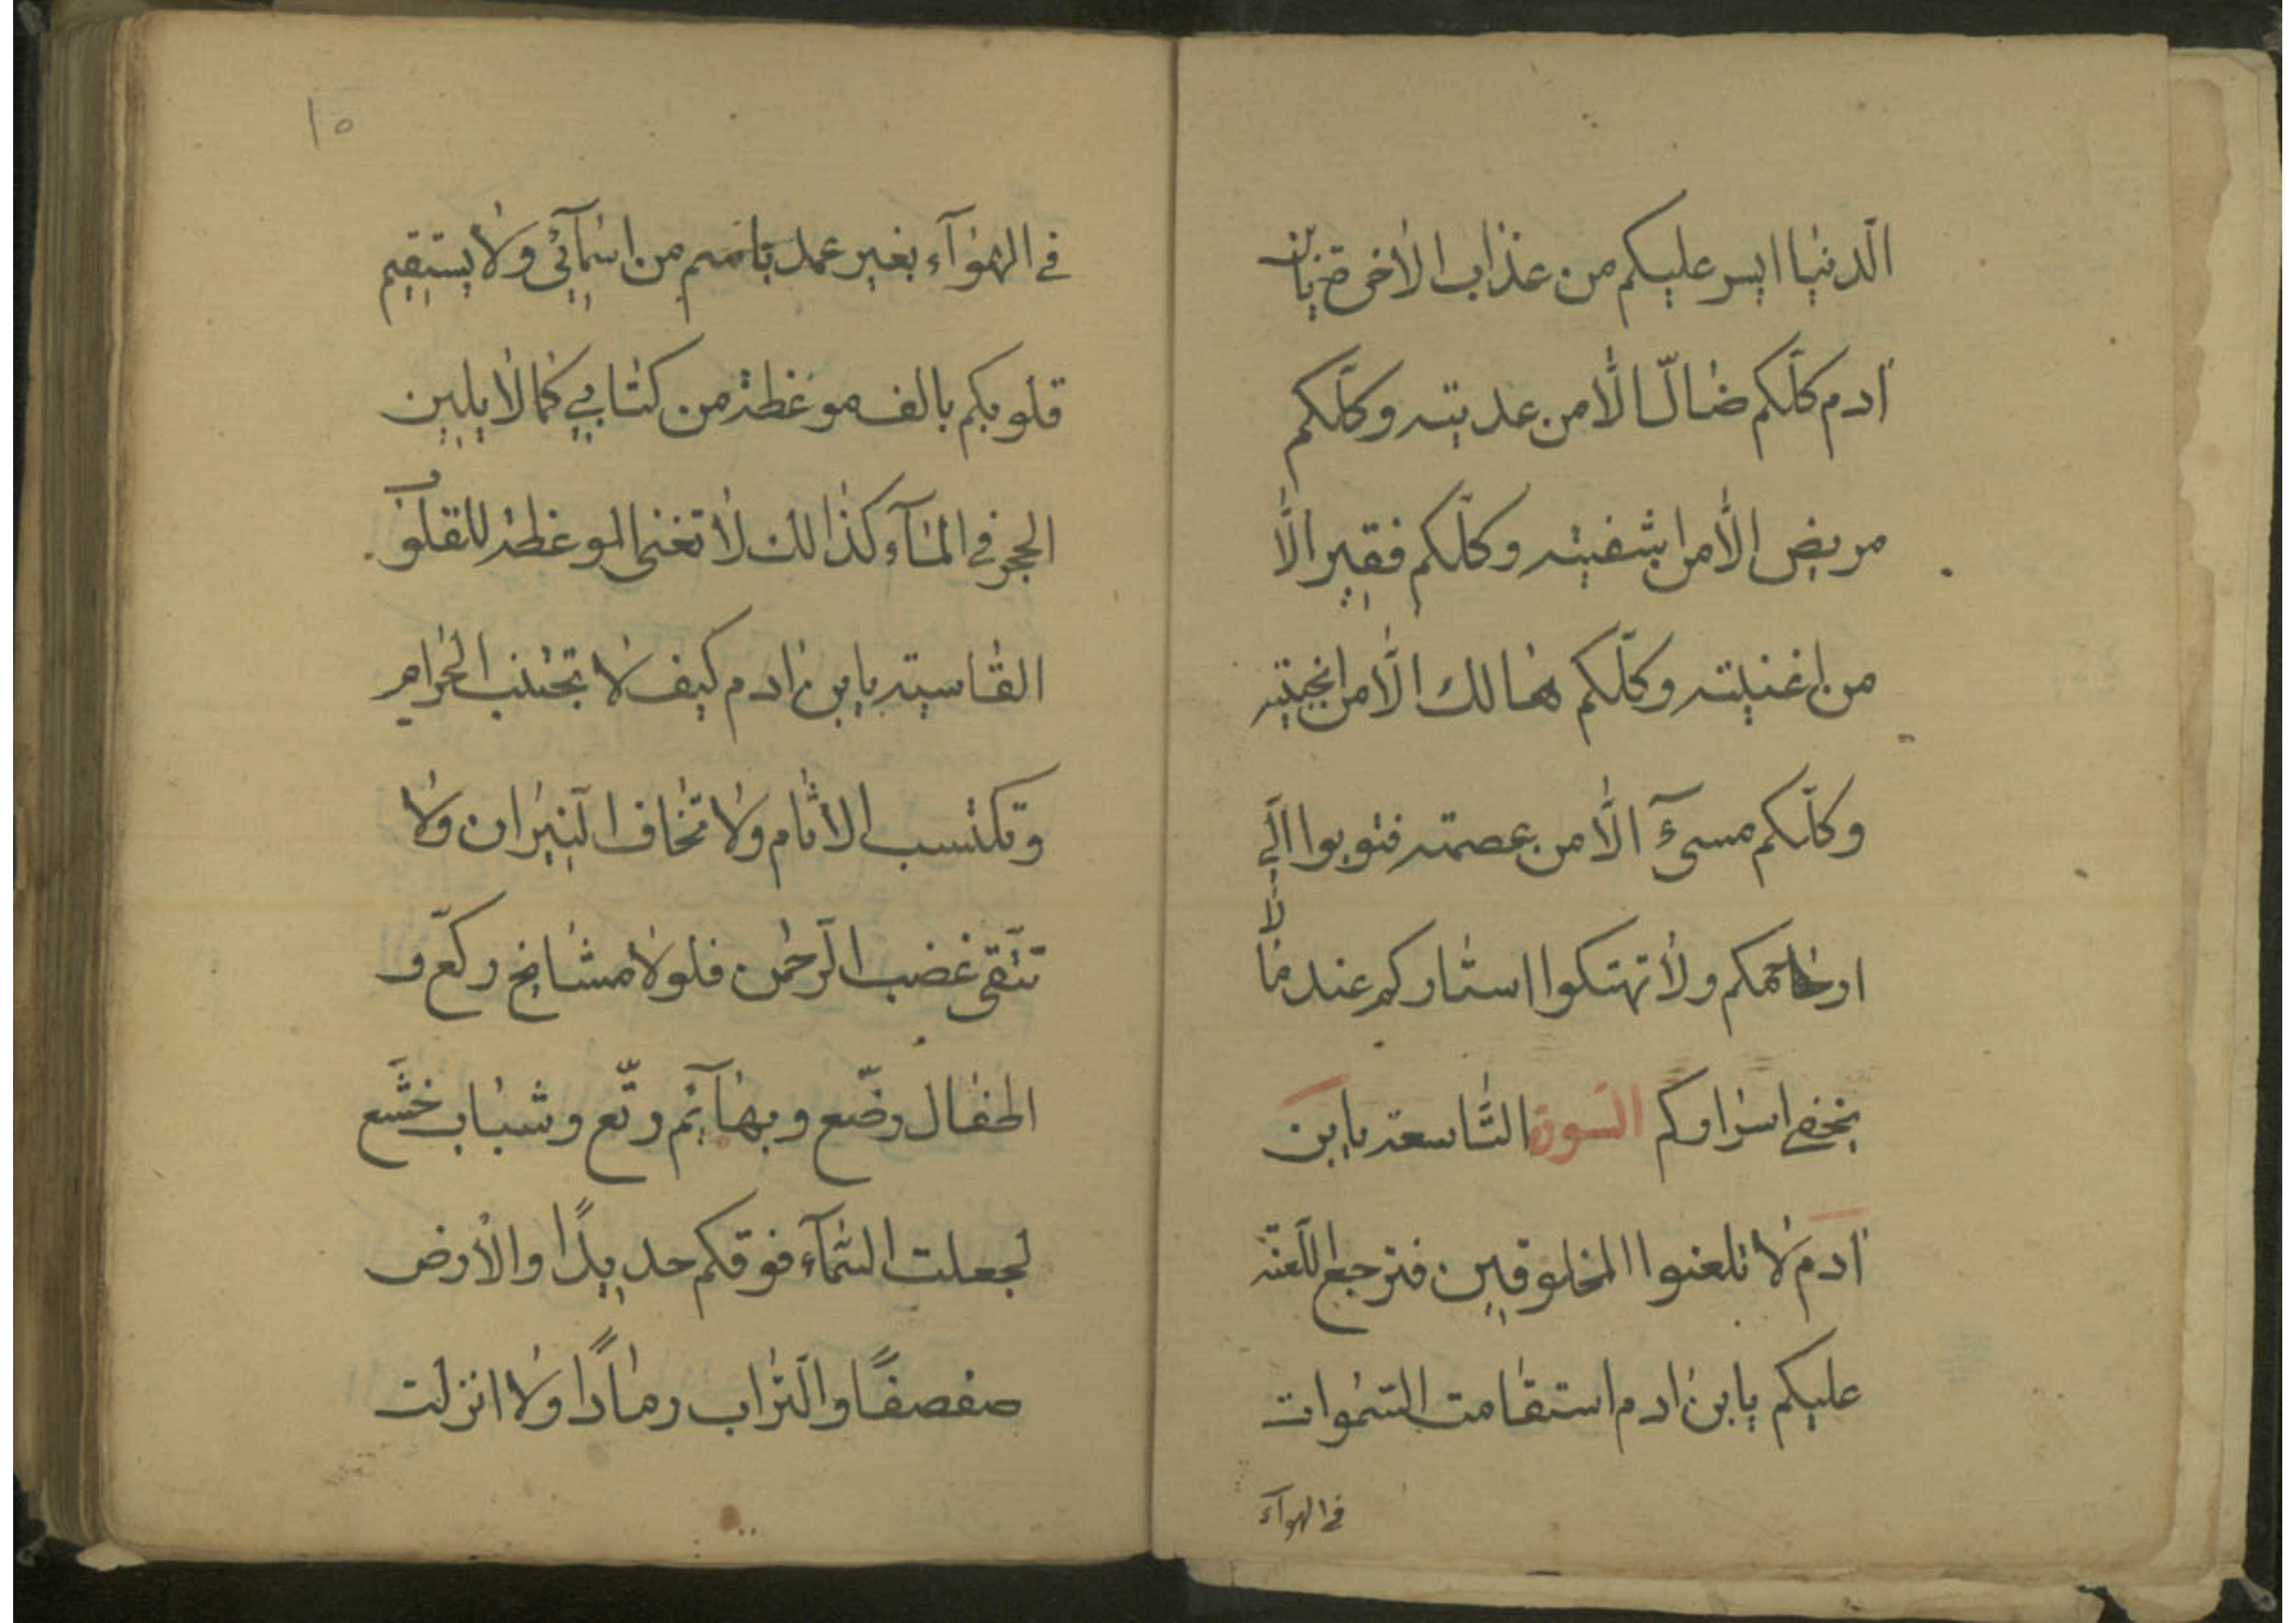 الّدنيا ايسر عليكم من عذاب الاخرة يابن
ادم كلّكم ضالّ الّا من هديته وكلّكم
مريض الّا من اشفيته وكلّكم فقير الّا
من اغنيته وكلّكم هالك الّا من انجيته
وكلّكم مسىٓء الّا من عصمته فتوبوا الّي
ارحامكم ولا تهتكوا استاركم عند من لا
يخفى اسراركم السورة التّاسعة يابن
ادم لا تلعنوا المخلوقين فترجع اللّعنة
عليكم يابن ادم استقامت السّموات
في الهوآء
١٥
في الهوآء بغير عمد باسم من اسمآئي ولا يستقيم
قلوبكم بالف موعظة من كتابي كما لا يلين
الحجر في المآء كذالك لا تغنى الموعظة للقلوب
القاسية يابن ادم كيف لا تجتنب الحرام
وتكتسب الاثام ولا تخاف النّيران ولا
تتّقى غضب الرّحمن فلولا مشايخ ركّع و
اطفال رضّع وبهآئم رتّع وشباب خشّع
لجعلت السّمآء فوقكم حديدًا والارض
صفصفًا والتّراب رمادًا ولا انزلت